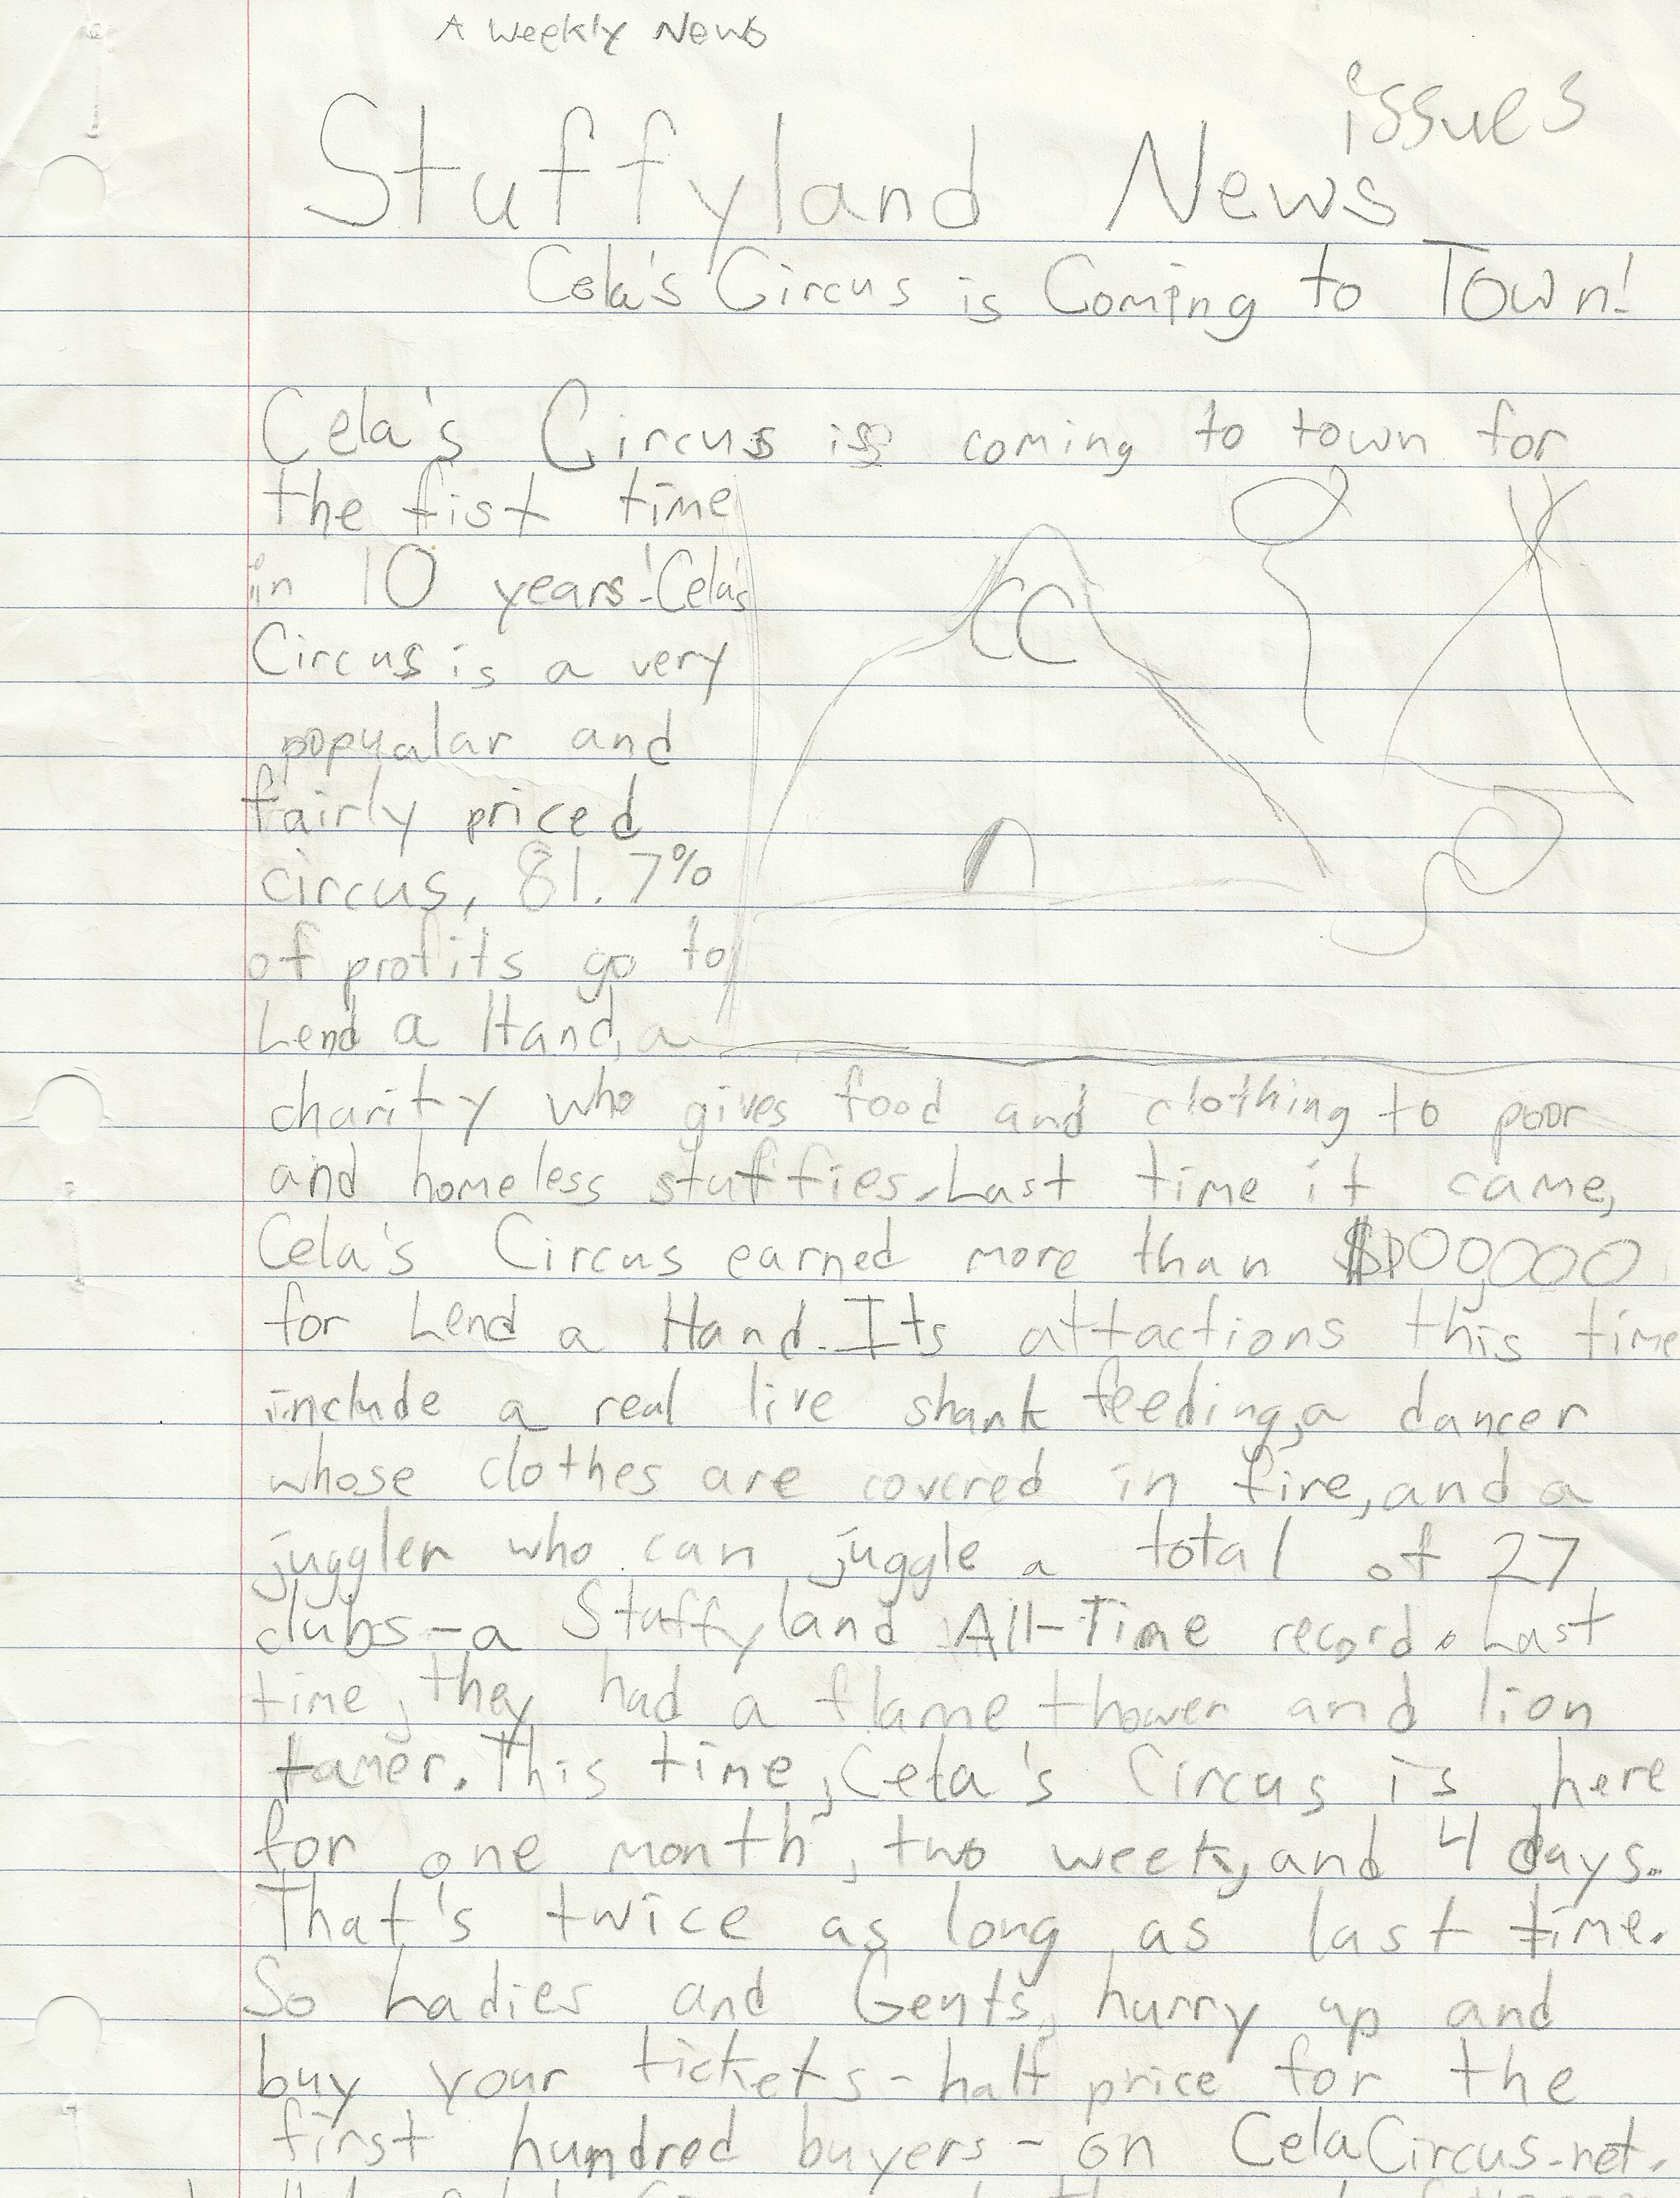 A Weekly News
issues
Stuffyland News
Cela's Circus is Coming to Town!
Cela's Circus is coming to town for
the fist time
in 10 years! Cela's
Circus is a very
popyalar and
fairly priced
circus, 81.7%
of profits go to
Lend a Hand, a
CC
charity who gives food and clothing to poor
and homeless stuffies. Last time it came,
Cela's Circus earned more than $100,000
for Lend a Hand. Its attactions this time
include a real live shark feeding, a dancer
whose clothes are covered in fire, and a
juggler who can juggle a total of 27
clubs - a Stuffyland All-Time record. Last
time, they had a flame thower and lion
tamer. This time, Cela's Circus is here
for one month, two weeks, and 4 days.
That's twice as long as last time.
So Ladies and Gents, hurry up and
buy your tickets - half price for the
first hundred buyers - on CelaCircus.net.